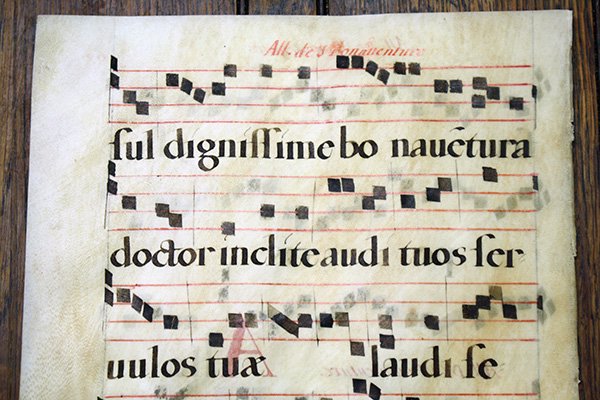 All. de S Bonauentura
ſul digniſſime bo nauẽtura
doctor inclite audi tuos ſer
uulos tuæ laudiſe